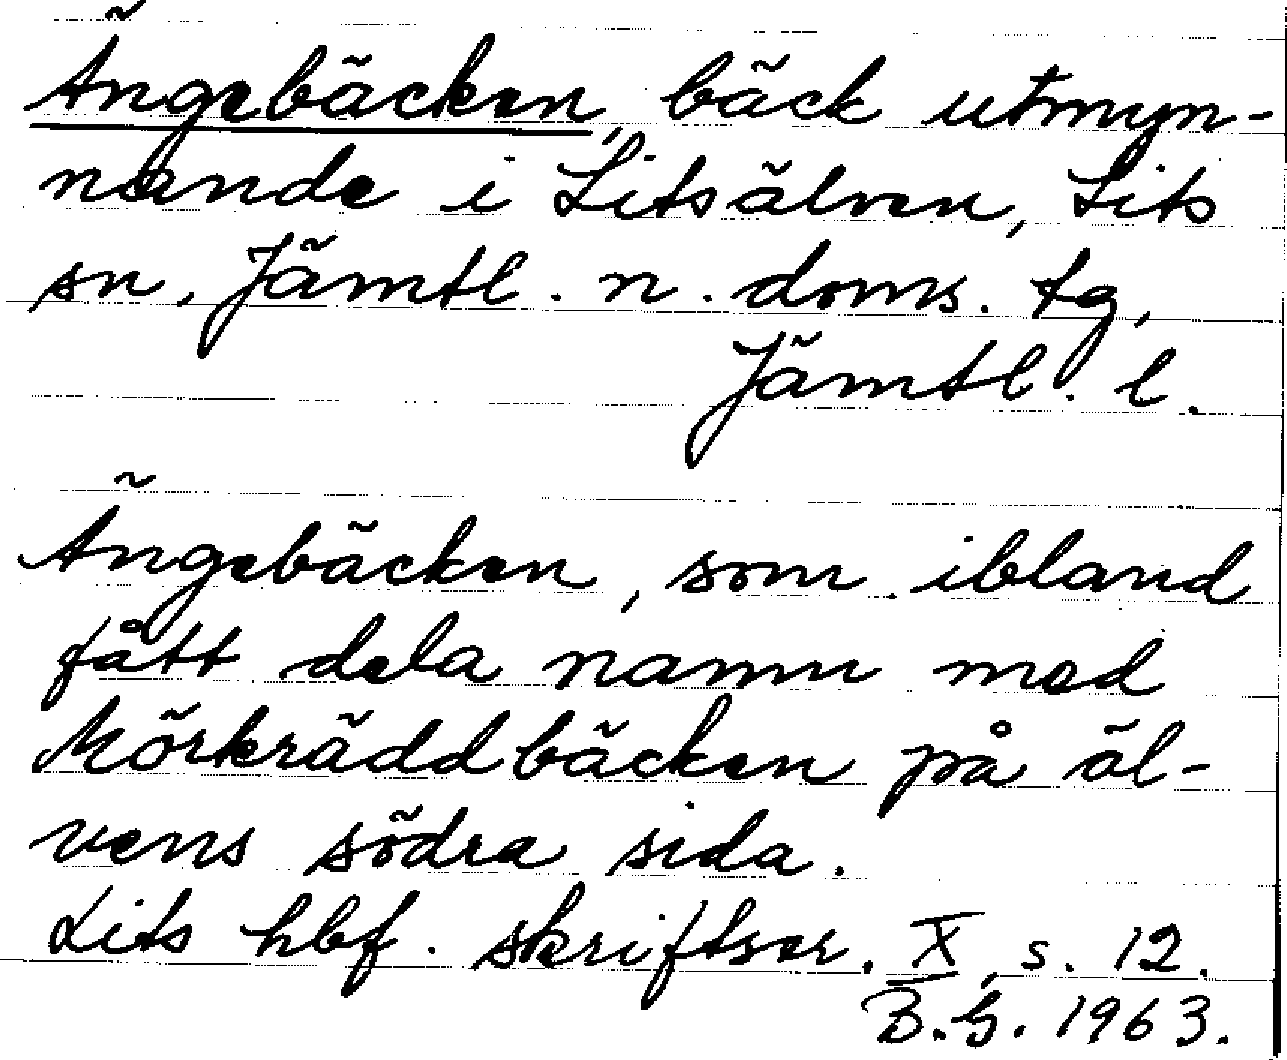 Ängebäcken, bäck utmyn-
nande i Litsälven, Lits
sn, Jämtl. n. doms. tg,
Jämtl. l.
Ängebäcken, som ibland
fått dela namn med
Mörkräddbäcken på äl-
vens södra sida.
Lits hbf. skriftser. X, s. 12.
B.G. 1963.